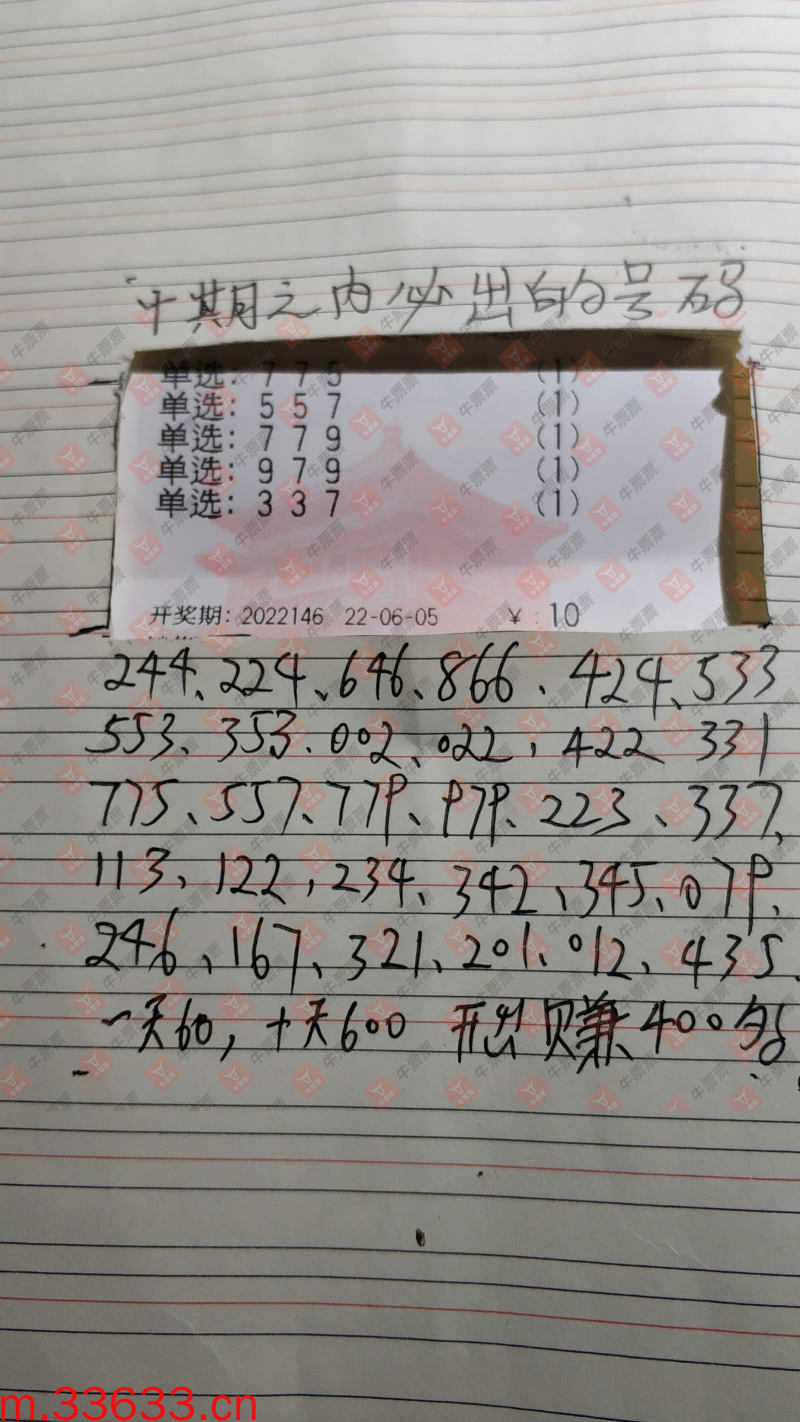 十期之内必出的号码
单选: 7 7 5 (1)
单选: 5 5 7 (1)
单选: 7 7 9 (1)
单选: 9 7 9 (1)
单选: 3 3 7 (1)
开奖期: 2022146 22-06-05 ¥: 10
244、224、646、866、424、533
553、353、002、022、422 331
775、557、779、979、223、337、
113、122、234、342、345、079、
246、167、321、201、012、435、
一天60，十天600 开出只赚400多
牛票票
m.33633.cn